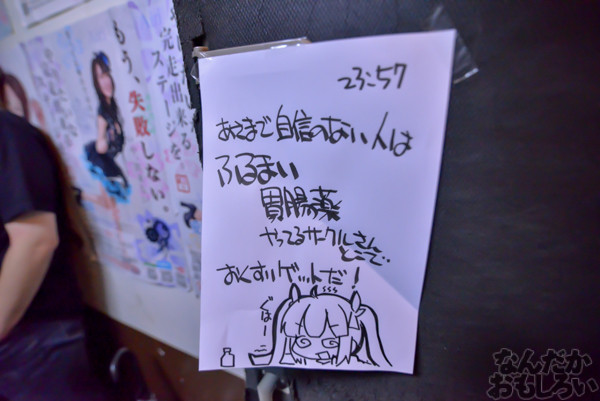 23:57
あさまで自信のない人は
ふるまい
胃腸薬
やってるサークルさん
とこで..
おくすりゲットだ!
ぐはー
もう、失敗しない
完走出来る
ステージを
なんだか
おもしろい